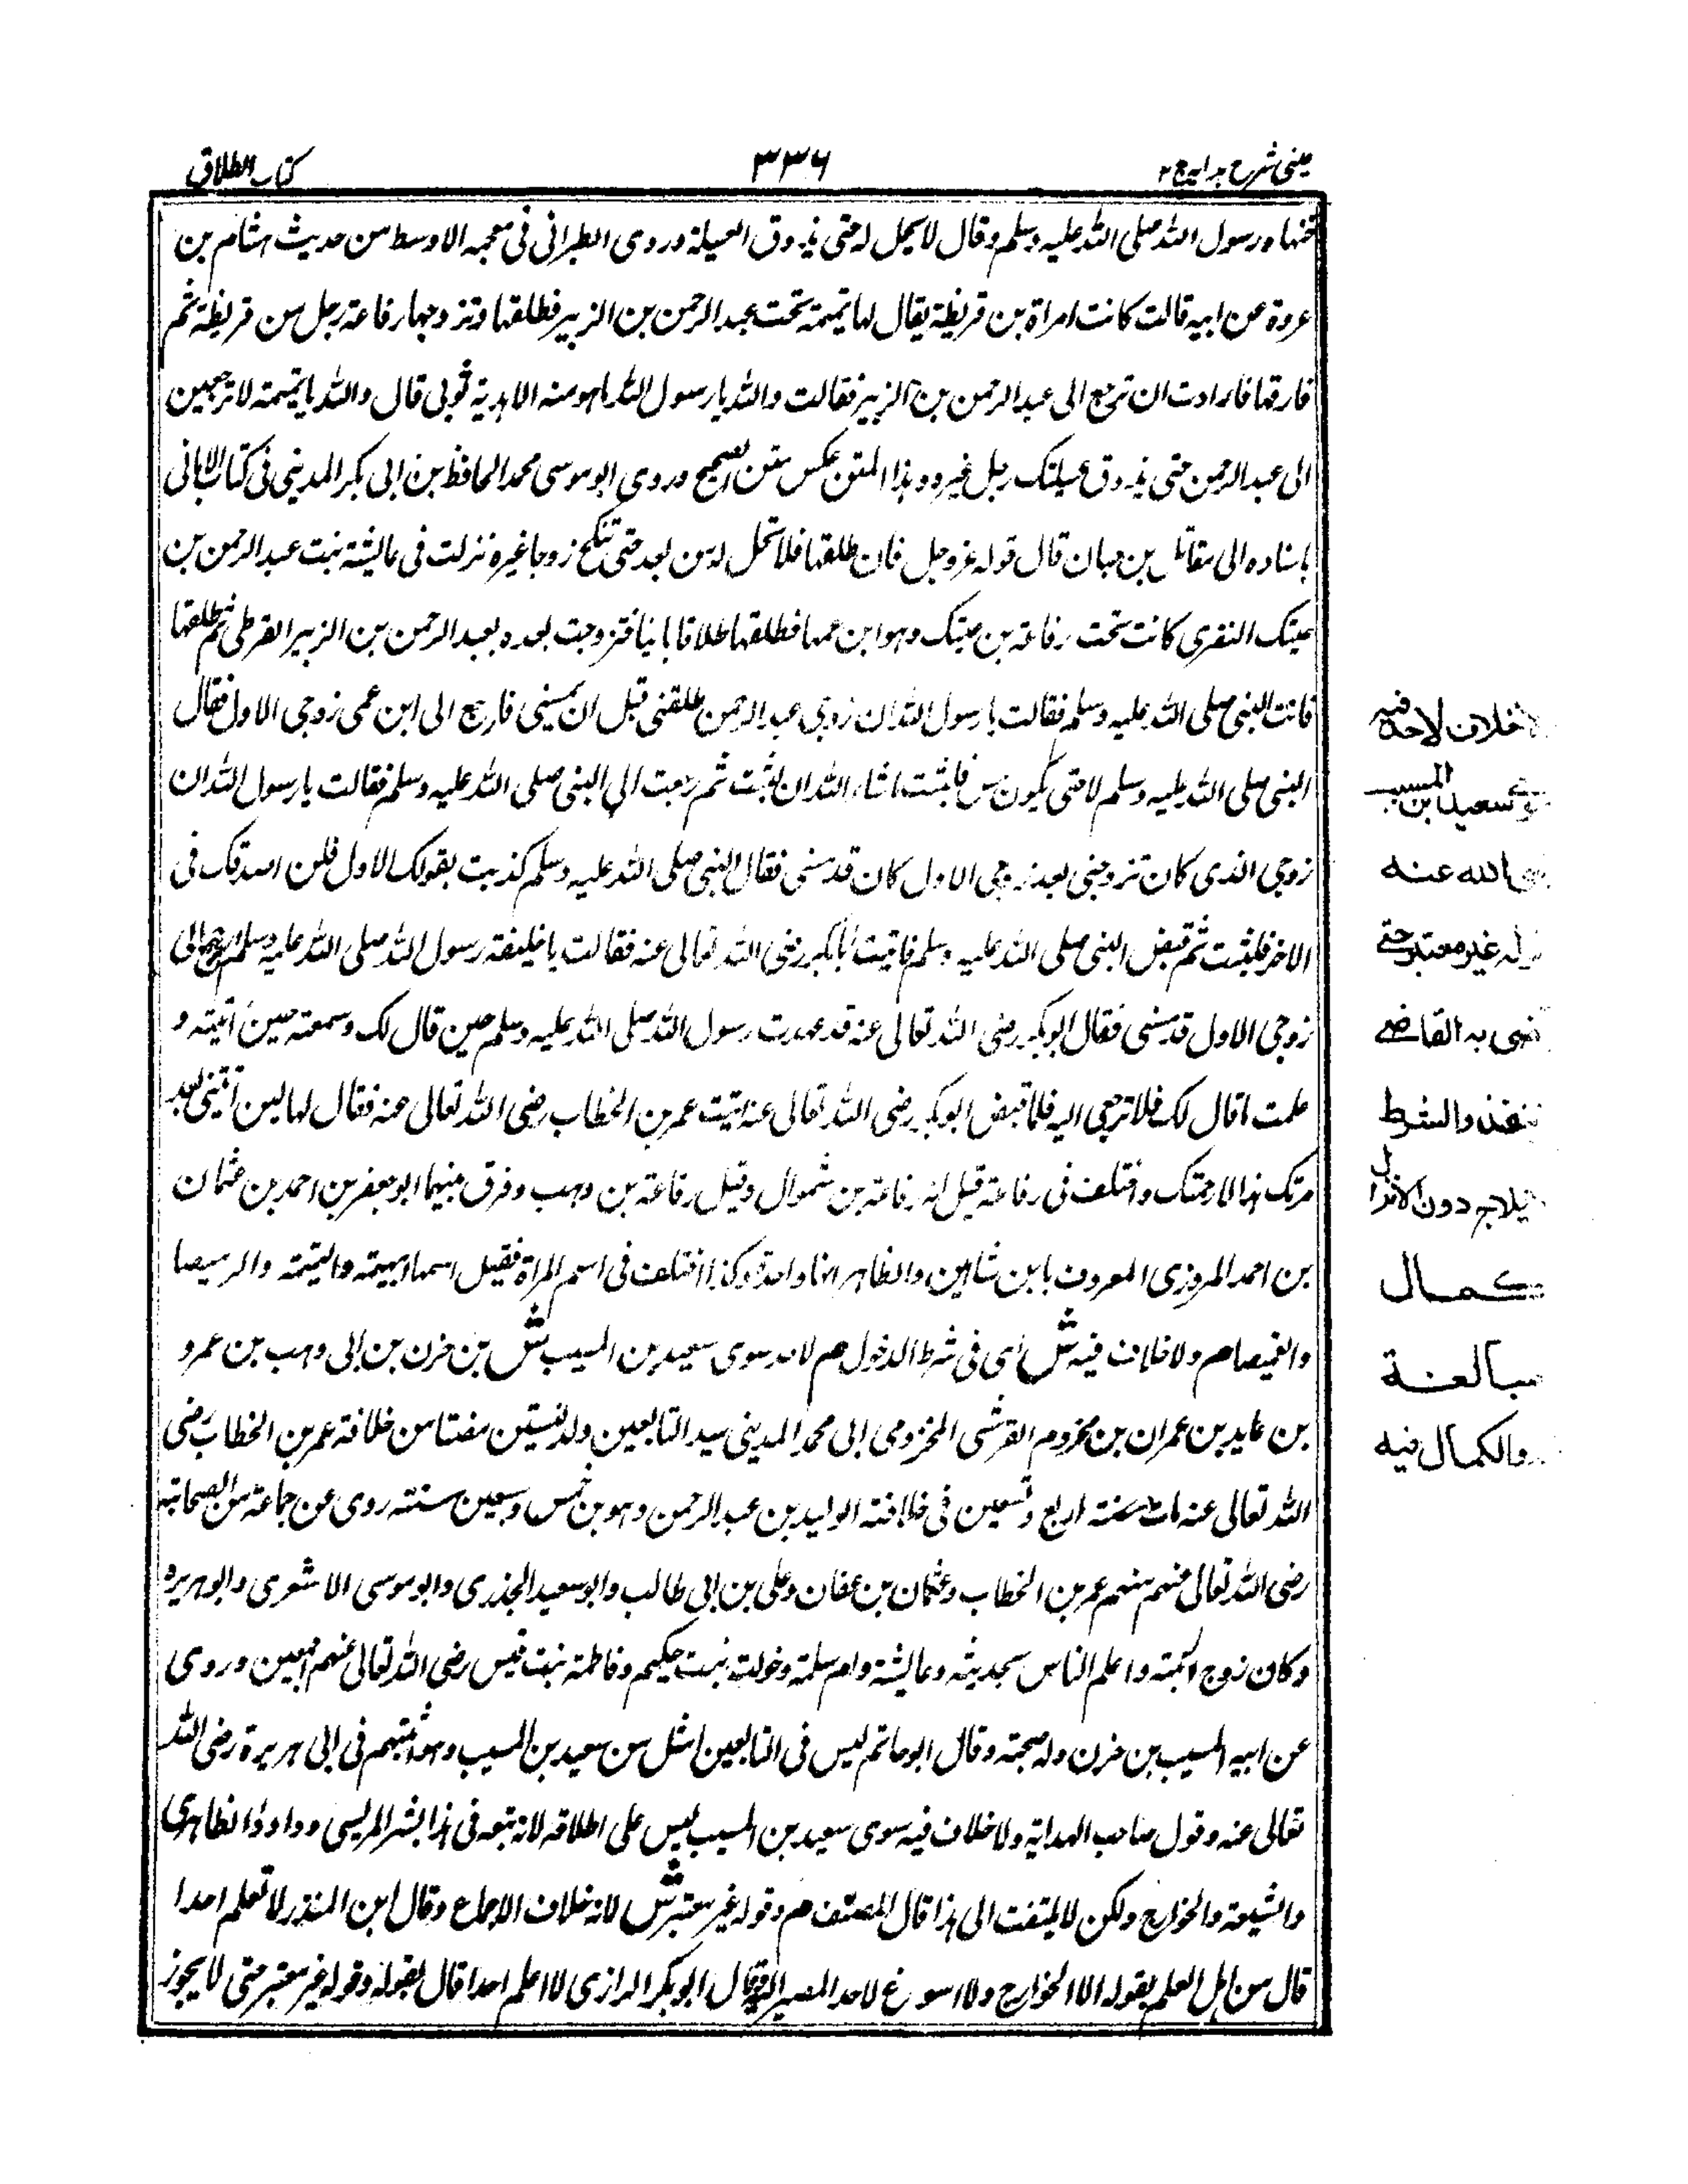 عینی شرح ہدایہ ج ۲
۳۳۶
کتاب الطلاق
فنهاه رسول الله صلى الله عليه وسلم وقال لا يحل له حتى يذوق العسيلة وروى الطبرانى فى معجمه الاوسط من حديث هشام بن
عروة عن ابيه قالت كانت امراة من قريظة يقال لها تميمة تحت عبد الرحمن بن الزبير فطلقها وتزوجها رفاعة رجل من قريظة ثم
فارقها فارادت ان ترجع الى عبد الرحمن بن الزبير فقالت والله يا رسول الله ما هو منه الا هدبة ثوبى قال والله يا تميمة لا ترجعين
الى عبد الرحمن حتى يذوق عسيلتك رجل غيره وهذا المتن عكس متن الصحيح وروى ابو موسى محمد الحافظ بن ابى بكر المدينى فى كتاب الامانى
باسناده الى مقاتل بن حبان قال قوله عز وجل فان طلقها فلا تحل له من بعد حتى تنكح زوجا غيره نزلت فى عايشة بنت عبد الرحمن بن
عتيك النضرى كانت تحت رفاعة بن عتيك وهو ابن عمها فطلقها طلاقا باينا فتزوجت بعده بعبد الرحمن بن الزبير القرظى ثم طلقها
فاتت النبى صلى الله عليه وسلم فقالت يا رسول الله ان زوجى عبد الرحمن طلقنى قبل ان يمسنى فارجع الى ابن عمى زوجى الاول فقال
النبى صلى الله عليه وسلم لا حتى يكون مس فلبثت ما شاء الله ان لبثت ثم رجعت الى النبى صلى الله عليه وسلم فقالت يا رسول الله ان
زوجى الذى كان تزوجنى بعد زوجى الاول كان قد مسنى فقال النبى صلى الله عليه وسلم كذبت بقولك الاول فلن اصدقك فى
الاخر فلبثت ثم قبض النبى صلى الله عليه وسلم فاتيت ابا بكر رضى الله تعالى عنه فقالت يا خليفة رسول الله صلى الله عليه وسلم ارجع الى
زوجى الاول قد مسنى فقال ابو بكر رضى الله تعالى عنه قد عهدت رسول الله صلى الله عليه وسلم حين قال لك وسمعته حين اتيته و
علمت ما قال لك فلا ترجعى اليه فلما قبض ابو بكر رضى الله تعالى عنه اتيت عمر بن الخطاب رضى الله تعالى عنه فقال لها لين اتيتنى بعد
مرتك هذا لارجمنك واختلف فى رفاعة قيل انه رفاعة بن شموال وقيل رفاعة بن وهب وفرق بينهما ابو جعفر بن احمد بن عثمان
بن احمد المروزى المعروف بابن شاهين والظاهر انها واحدة وكذا اختلف فى اسم المراة فقيل اسمها سهيمة والتميمة والرميصا
والغميصا م ولا خلاف فيه ش اى فى شرط الدخول م لاحد سوى سعيد بن المسيب ش بن حزن بن ابى وهب بن عمرو
بن عايد بن عمران بن مخزوم القرشى المخزومى ابى محمد المدينى سيد التابعين ولد لسنتين مضتا من خلافة عمر بن الخطاب رضى
الله تعالى عنه مات سنة اربع وتسعين فى خلافة الوليد بن عبد الرحمن وهو بن خمس وسبعين سنة روى عن جماعة من الصحابة
رضى الله تعالى عنهم منهم عمر بن الخطاب وعثمان بن عفان وعلى بن ابى طالب وابو سعيد الخدرى وابو موسى الاشعرى وابو هريره
وكان زوج ابنته واعلم الناس بحديثه وعايشة وام سلمة وخولت بنت حكيم وفاطمة بنت قيس رضى الله تعالى عنهم اجمعين وروى
عن ابيه المسيب بن حزن وله صحبة وقال ابو حاتم ليس فى التابعين انبل من سعيد بن المسيب وهو اثبتهم فى ابى هريرة رضى الله
تعالى عنه وقول صاحب الهداية ولا خلاف فيه سوى سعيد بن المسيب ليس على اطلاقه لانه تبعه فى هذا بشر المريسى وداود الظاهرى
والشيعة والخوارج ولكن لا يلتفت الى هذا قال المصنف م وقوله غير معتبر ش لانه خلاف الاجماع وقال ابن المنذر لا نعلم احدا
قال من اهل العلم بقوله الا الخوارج ولا اسوغ لاحد المصير اليه وقال ابو بكر الرازى لا اعلم احدا قال بقوله وقوله غير معتبر حتى لا يجوز
خلاف لاحد فيه
سوى سعيد ابن المسيب
رضى الله عنه
قوله غير معتبر حتى
قضى به القاضى
ينفذ والشرط
الايلاج دون الانزال
كمال
مبالغة
والكمال فيه